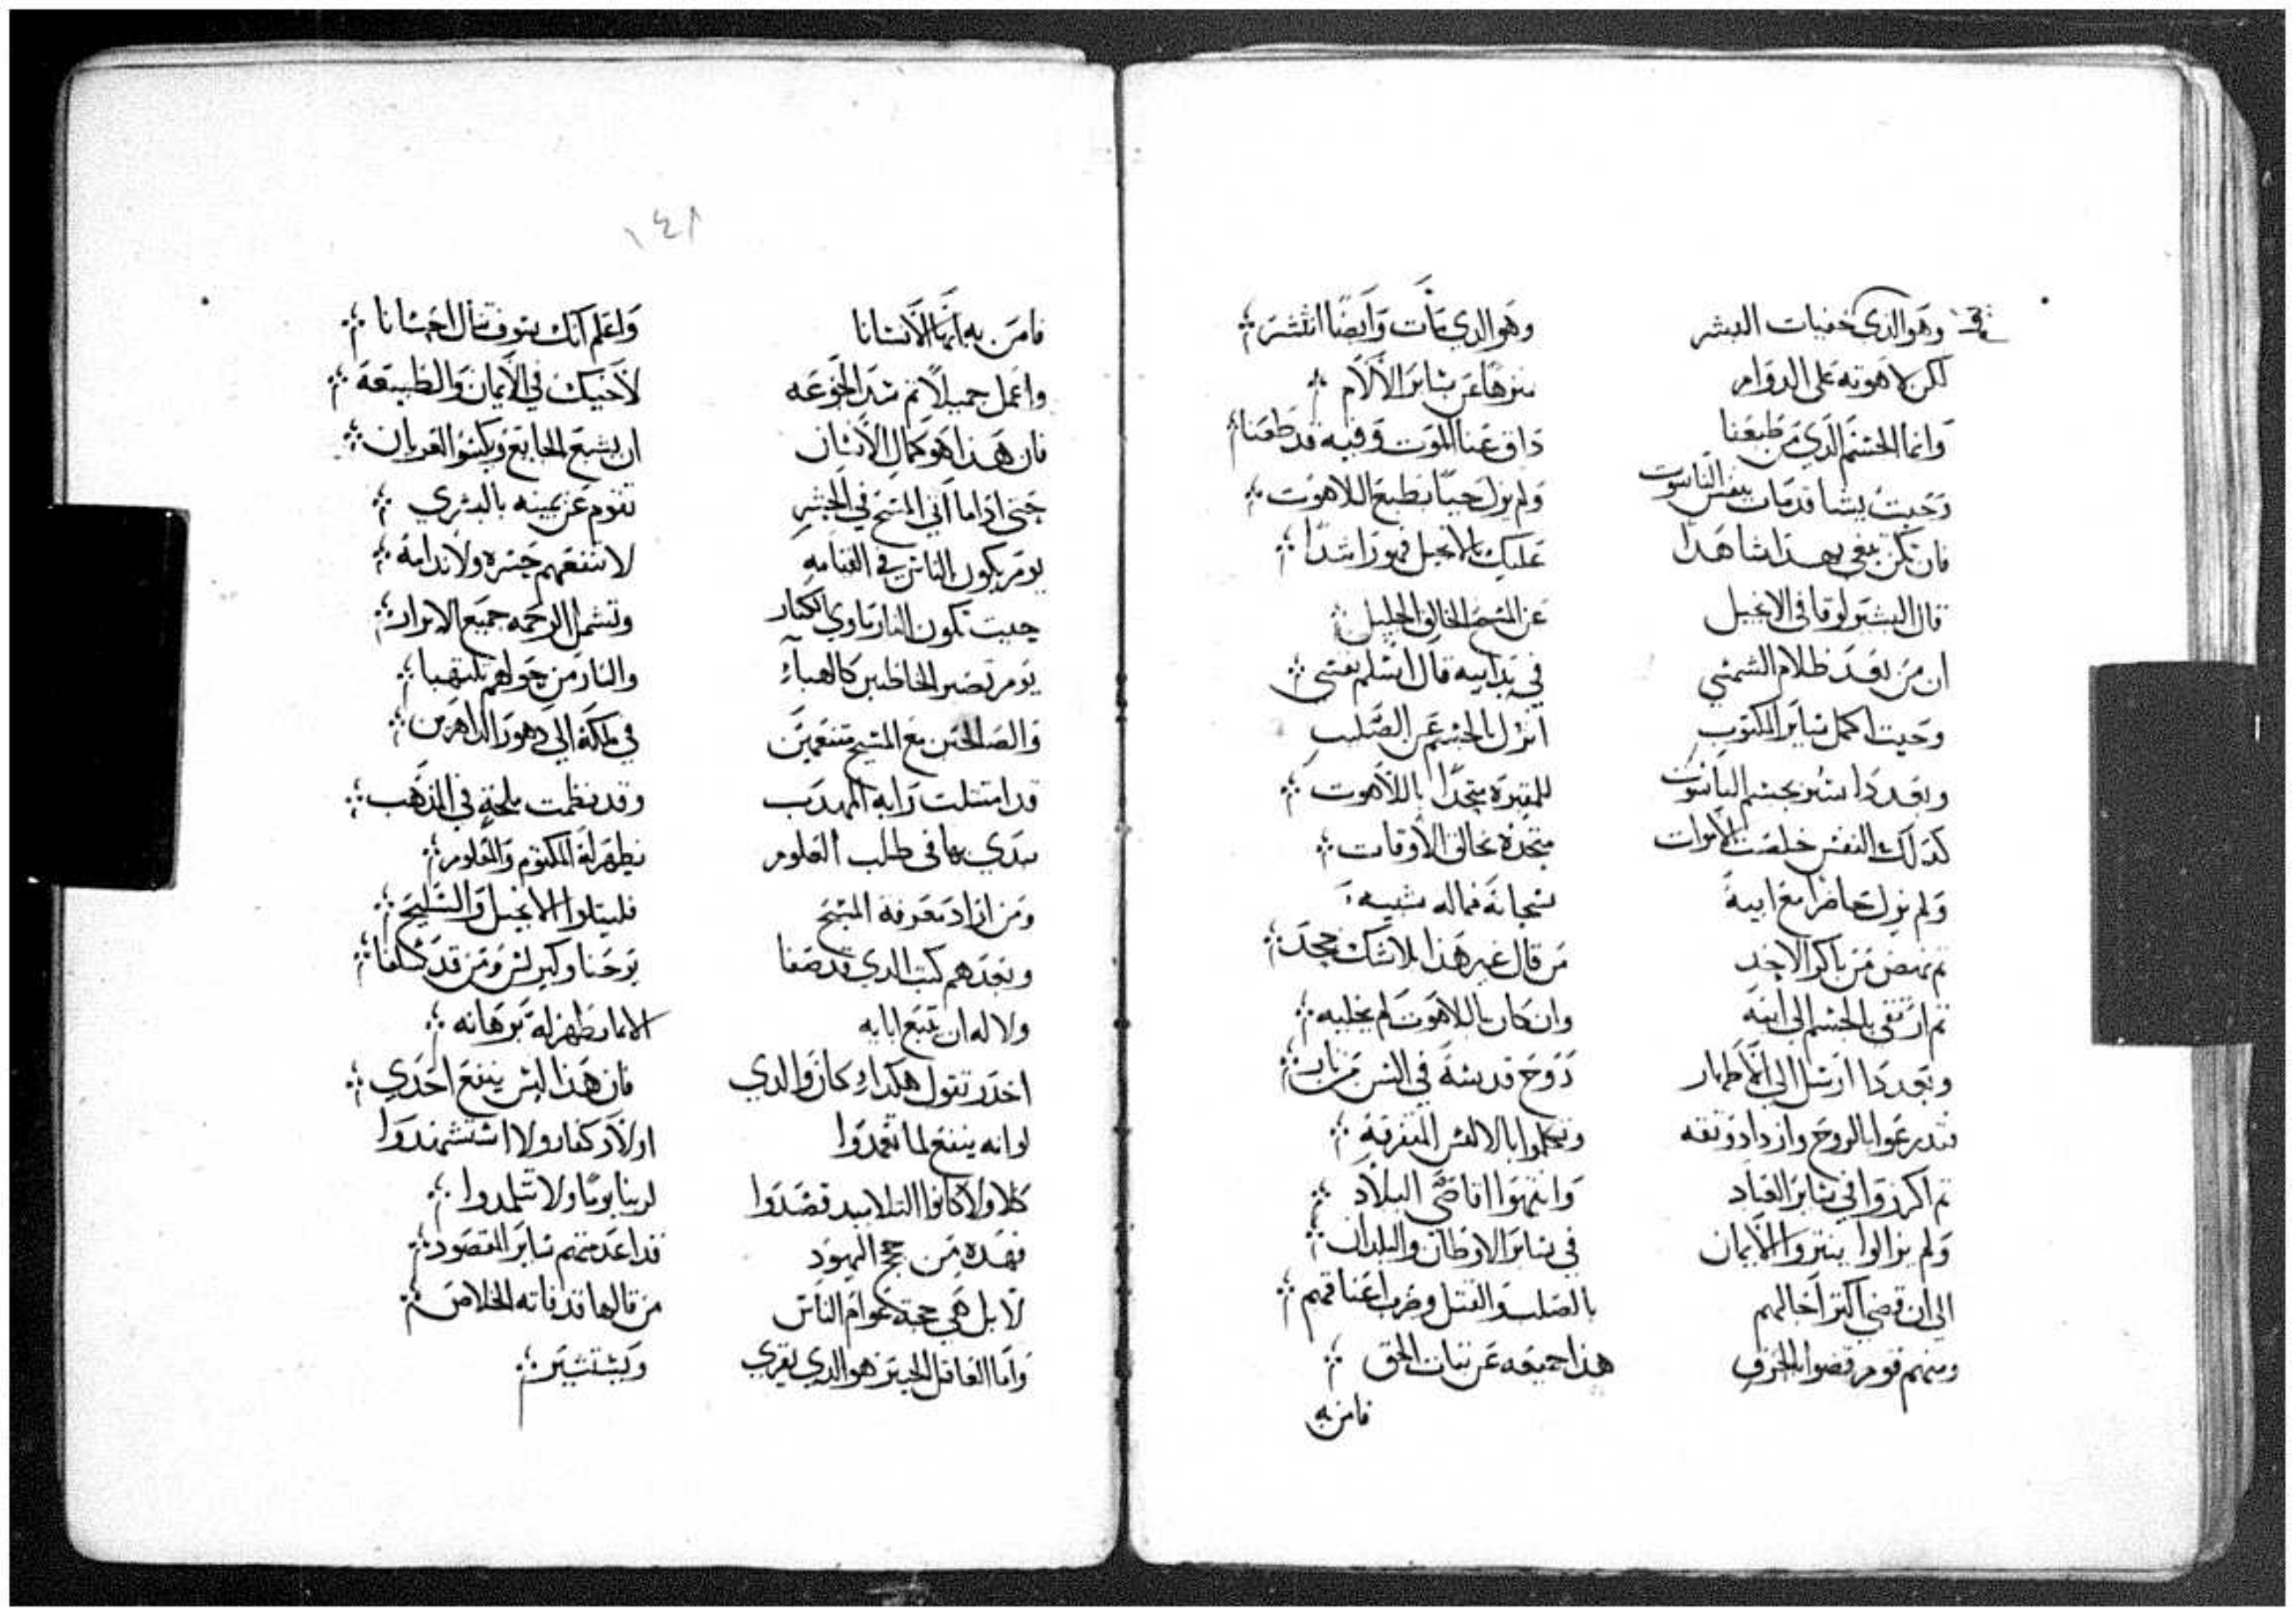 وهو الذي خفيات البشر وهو الذي مات وايضا انتشر
لكن لاهوته على الدوام منزها عن سائر الالام
وانما الجسم الذي من طبعنا ذاق عنا الموت وفيه قد طعنا
وحيث يسا قد مات بنفس الناسوت ولم يزل حيا بطبع اللاهوت
فان تكن تبغي بهدا شاهدا عليك بالانجيل فهو راشدا
قال البشير لوقا في الانجيل عن المسيح الخالق الجليل
ان من بعد ظلام الشمس في يد ابيه قال اسلم نفسي
وحيث اكمل سائر المكتوب انزل بالجسم عن الصليب
وبعد دا بجسم الناسوت للمقبره متحدا باللاهوت
كدلك النفس خلصت الاموات متحده بخالق الاوقات
ولم يزل حاضرا مع ابيه سبحانه فماله شبيه
تم نهض من باكر الاحد من قال غير هدا بلا شك جحد
تم ارتقى بالجسم الى ابيه وان كان باللاهوت لم يخليه
وبعد دا ارسل الى الاطهار روح قديسة في السن من نار
فتدرعوا بالروح وازدادو تقه وتكلموا بالالسن المتفرقه
تم اكرزوا في سائر العباد وانتهوا اقاصي البلاد
ولم يزالوا ينشروا الايمان في سائر الاوطان والبلدان
الى ان قضى اكتر اجالهم بالصلب والقتل وضرب اعناقهم
ومنهم قوم قضوا بالحرق هدا جميعه عن تبات الحق
فامن به
١٤٨
فامن به ايها الانسانا واعلم انك سوف تنال احسانا
واعمل جميلا تم سد الجوعه لاخيك في الايمان والطبيعه
فان هدا هو كمال الانسان ان يشبع الجايع ويكسو العريان
حتى ادا ما اتى المسيح في الحشر تقوم عن يمينه بالبشري
يوم يكون الناس في القيامه لا تنفعهم حسره ولا ندامه
حيت تكون النار ماوي الكفار وتشمل الرحمه جميع الابرار
يوم تصير الخاطيين كالهباء والنار من حولهم تلتهبا
والصالحين مع المسيح متنعمين في ملكه الى دهور الداهرين
قد امتتلت رايه المهدب وقد نظمت ملحة في المدهب
في طلب العلوم يظهر له المكتوم والمعلوم
ومن اراد معرفة المسيح فليتلوا الانجيل والسليح
وبعدهم كتب الدي قد صفا يوحنا وكيرلس ومن قد سلفا
ولا له ان يتبع ابايه الا بما يظهر له برهانه
احدر تقول هكدا كان والدي فان هدا ليس ينفع احدي
لو انه ينفع لما تعمدوا اولاد كفار ولا استشهدوا
كلا ولا كانوا التلاميد قصدوا لربنا يوما ولا تلمدوا
فهده من حجج اليهود قد اعدمتهم ساير المقصود
لا بل هي حجة عوام الناس من قالها قد فاته الخلاص
واما العاقل الخبير هو الدي يقري ويستشير